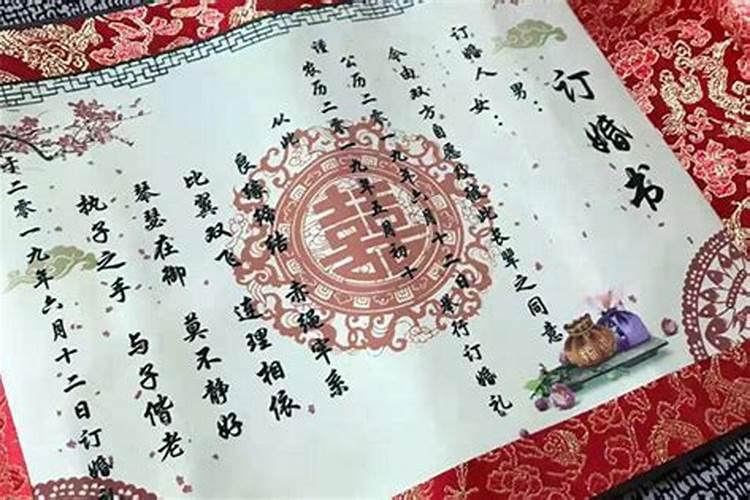 订婚书
男：
订婚人女：
令由双方自愿及彼此长辈之同意
公历二零一九年六月十二日举行订婚礼
谨农历二零一九年五月初十
从此
良缘缔结 赤绳牢系
比翼双飞 连理相依
琴瑟在御 莫不静好
执子之手 与子偕老
于二零一九年六月十二日订婚